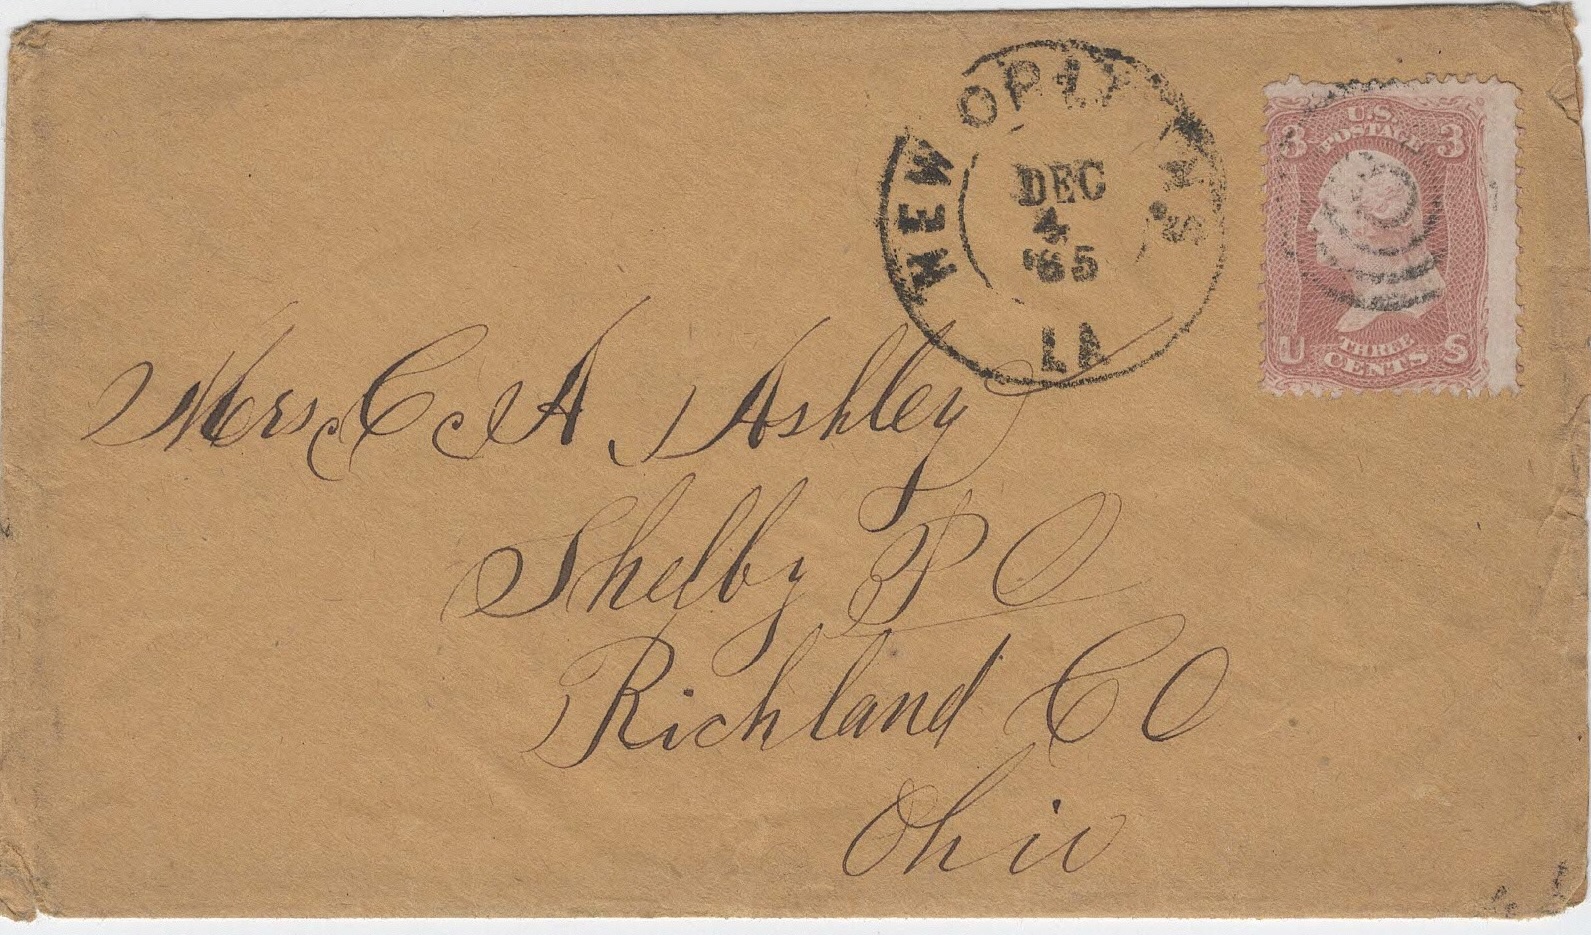 NEW ORLEANS
DEC
4
'65
LA
3 U.S. 3
POSTAGE
THREE
U CENTS S
Mrs C A Ashley
Shelby P O
Richland CO
Ohio